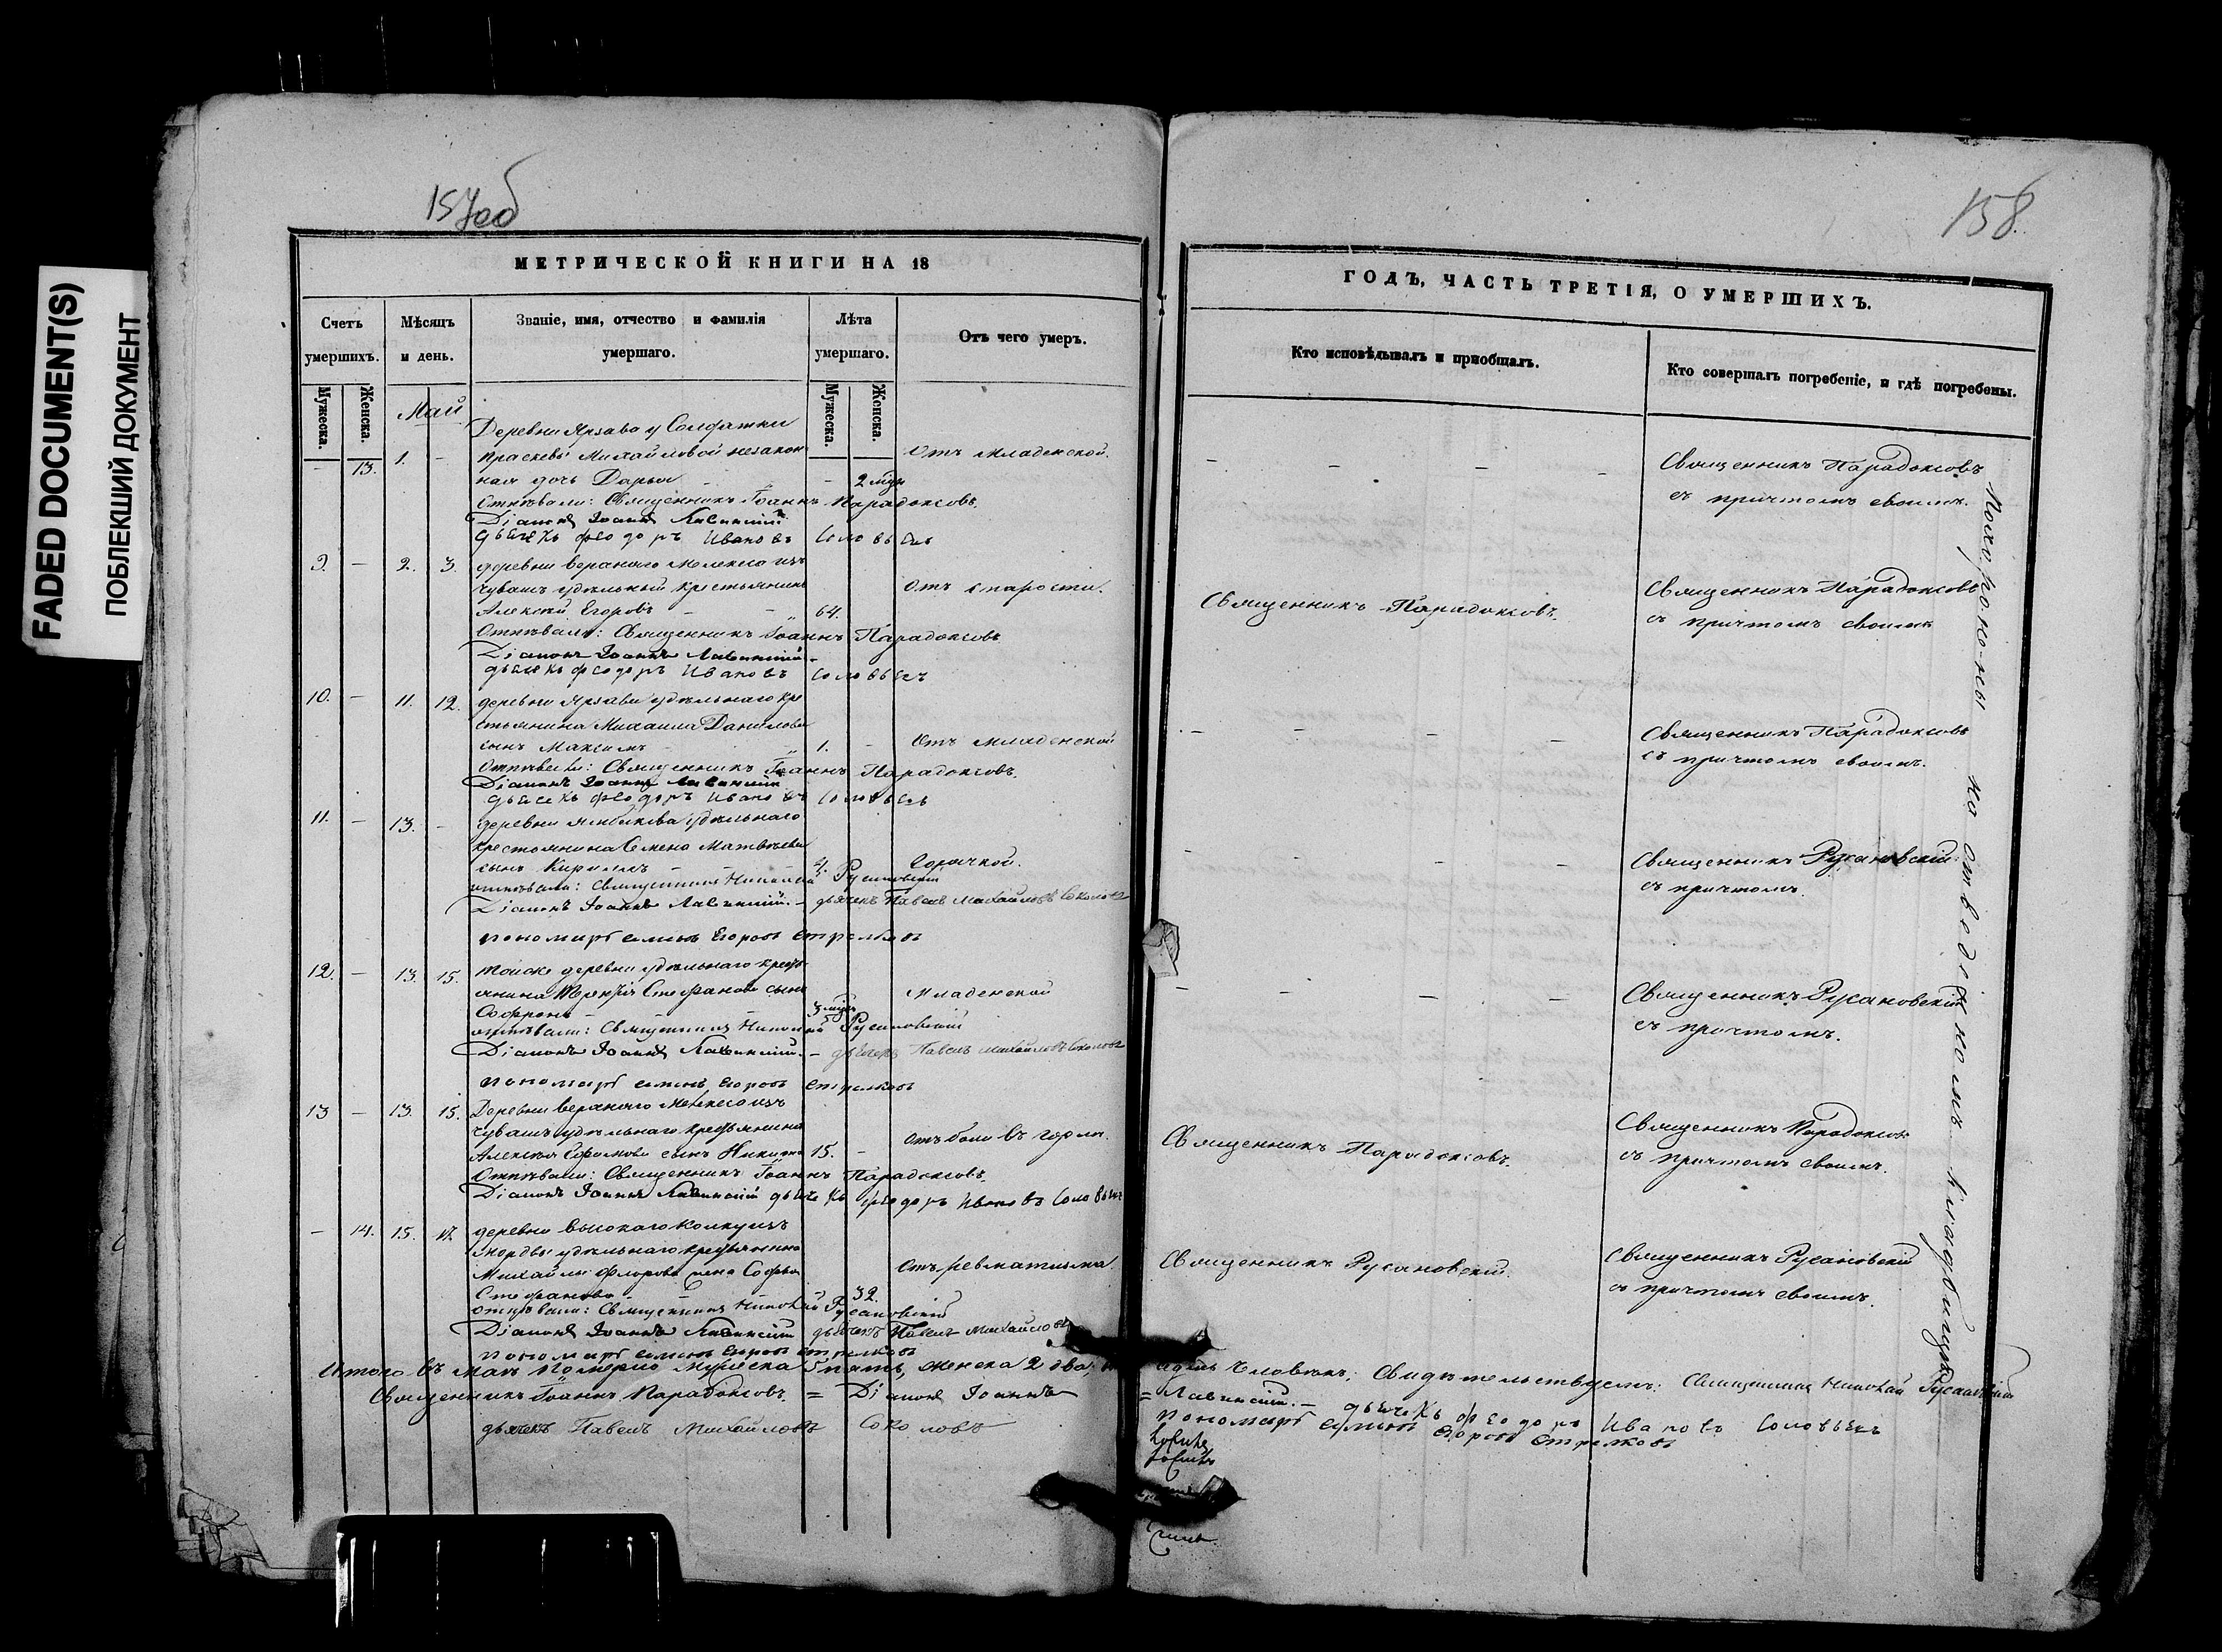 FADED DOCUMENT(S)
ПОБЛЕКШИЙ ДОКУМЕНТ
157об
158.
МЕТРИЧЕСКОЙ КНИГИ НА 18
ГОДЪ, ЧАСТЬ ТРЕТІЯ, О УМЕРШИХЪ.
Счетъ умершихъ.
Мѣсяцъ и день.
Званіе, имя, отчество и фамилія умершаго.
Лѣта умершаго.
Отъ чего умеръ.
Кто исповѣдывалъ и пріобщалъ.
Кто совершалъ погребеніе, и гдѣ погребены.
Мужеска. Женска.
Мужеска. Женска.
Май
Деревни Ярзава у Солдатки
– 13. 1. – Праскевы Михайловой незакон Отъ младенской. Священникъ Парадоксовъ
ная дочь Дарья – 2 мѣся съ причтомъ своимъ.
Отпѣвали: Священникъ Іоаннъ Парадоксовъ.
Діаконъ Іоаннъ Лавинскій
дьячекъ Феодоръ Ивановъ Соловьевъ
9. – 2. 3. деревни веранаго Мелекеса изъ
чувашъ удѣльный крестьянинъ Отъ старости. Священникъ Парадоксовъ
Алексѣй Егоровъ – – 64. Священникъ Парадоксовъ. съ причтомъ своимъ
Отпѣвали: Священникъ Іоаннъ Парадоксовъ
Діаконъ Іоаннъ Лавинскій
дьячекъ Феодоръ Ивановъ Соловьевъ
10. – 11. 12. деревни Ярзави удѣльнаго кре
стьянина Михаила Данилова Священникъ Парадоксовъ
сынъ Максимъ 1. – Отъ младенской съ причтомъ своимъ.
Отпѣвали: Священникъ Іоаннъ Парадоксовъ.
Діаконъ Іоаннъ Лавинскій
дьячекъ Феодоръ Ивановъ Соловьевъ
11. – 13. – деревни удѣльнаго
крестьянина Семена Матвѣева Священникъ Русановскій
сынъ Кириллъ – Горячкой. съ причтомъ.
отпѣвали: Священникъ Николай Русановскій
Діаконъ Іоаннъ Лавинскій. – дьячекъ Павелъ Михайловъ Соколовъ
пономарь Семенъ Егоровъ Стрелковъ
12. – 13. 15. Тойже деревни удѣльнаго кресть
янина Терентія Стефанова сынъ Младенской Священникъ Русановскій
Софронъ – 3 мѣся съ причтомъ.
отпѣвали: Священникъ Николай Русановскій
Діаконъ Іоаннъ Лавинскій. – дьячекъ Павелъ Михайловъ Соколовъ
пономарь Семенъ Егоровъ Стрелковъ
13 – 13. 15. Деревни веранаго Мелекеса изъ
чувашъ удѣльнаго крестьянина Отъ боли въ горлѣ. Священникъ Парадоксовъ
Алексѣя сынъ Никита 15. – Священникъ Парадоксовъ. съ причтомъ своимъ.
Отпѣвали: Священникъ Іоаннъ Парадоксовъ.
Діаконъ Іоаннъ Лавинскій дьячекъ Феодоръ Ивановъ Соловьевъ
– 14. 15. 17. деревни Высокаго Колку изъ
мордвы удѣльнаго крестьянина Священникъ Русановскій
Михайлы Флорова жена Софья Отъ ревматизма. Священникъ Русановскій. съ причтомъ своимъ.
Стефанова – – 32.
отпѣвали: Священникъ Николай Русановскій
Діаконъ Іоаннъ Лавинскій дьячекъ Павелъ Михайловъ
пономарь Семенъ Егоровъ Стрелковъ
Похороненъ на отведенномъ кладбищѣ
Итого въ маѣ померло мужеска 5 пять, женска 2 два, человѣкъ. Свидѣтельствуемъ: Священникъ Николай Русановскій
Священникъ Іоаннъ Парадоксовъ. = Діаконъ Іоаннъ = Лавинскій. – дьячекъ Феодоръ Ивановъ Соловьевъ
дьячекъ Павелъ Михайловъ Соколовъ пономарь Семенъ Егоровъ Стрелковъ